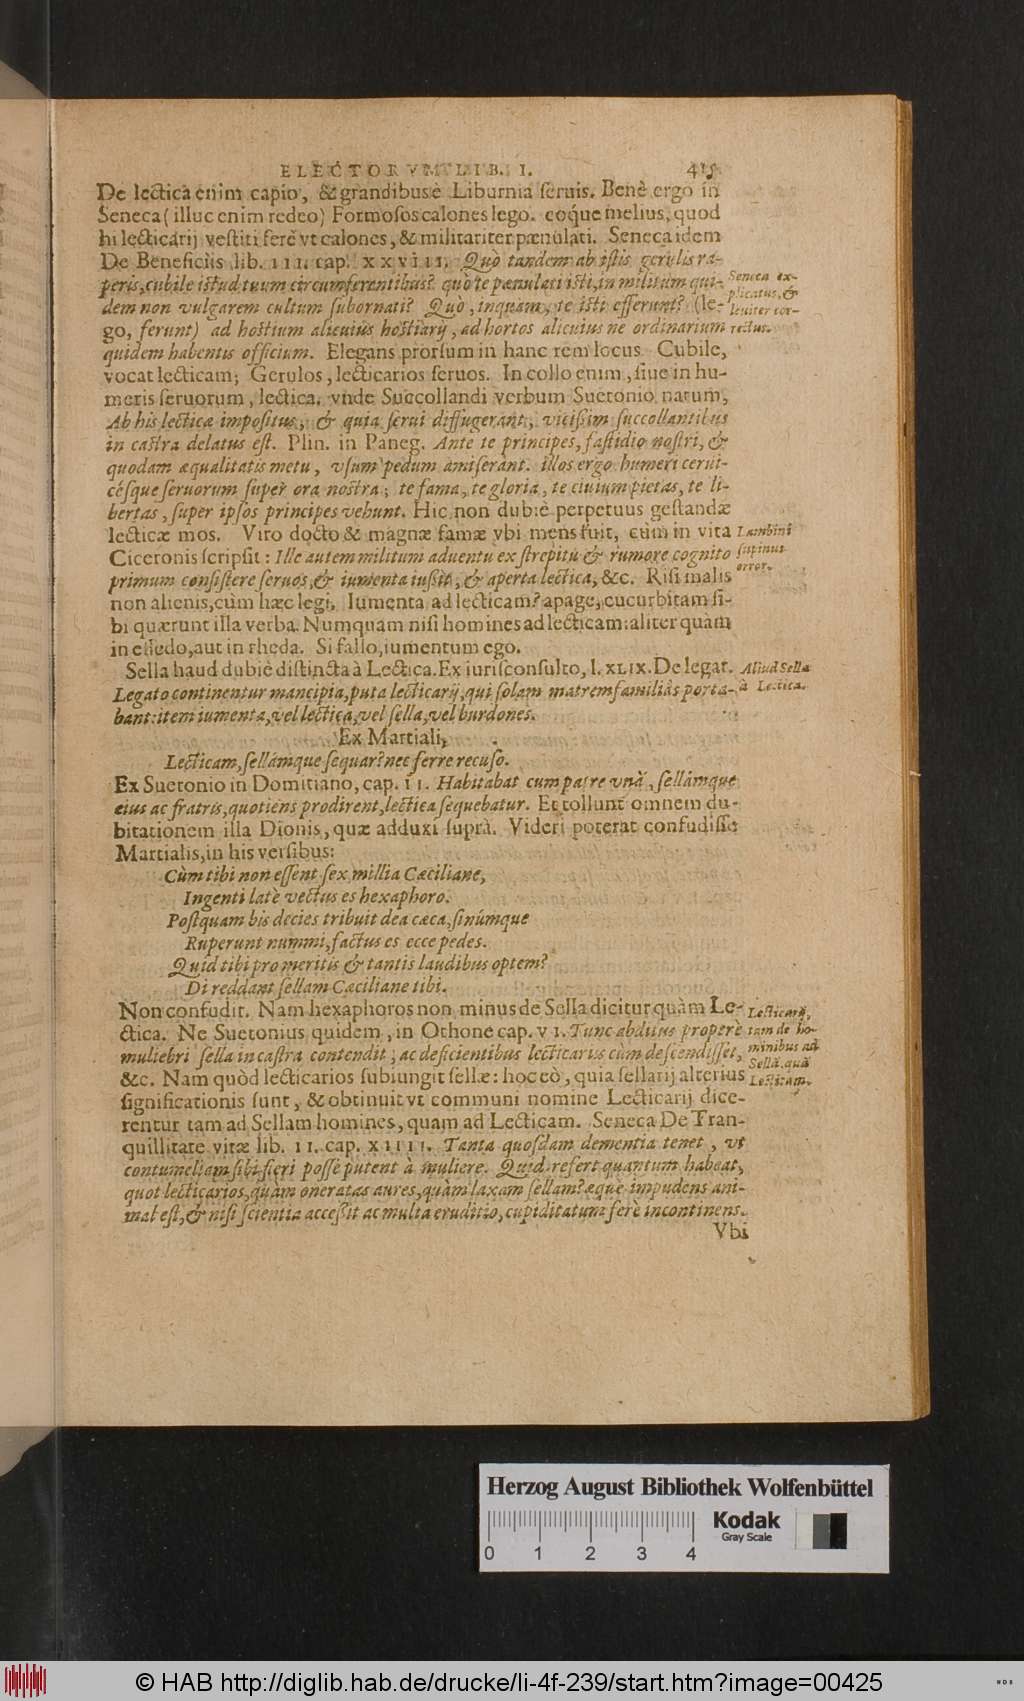 ELECTORVM LIB. I. 415
De lectica enim capio, & grandibus è Liburnia seruis. Benè ergo in
Seneca (illuc enim redeo) Formosos calones lego. eoq́ue melius, quod
hi lecticarij vestiti ferè vt calones, & militariter pænulati. Seneca idem
De Beneficiis lib. III. cap. XXVIII. Quò tandem ab istis gerulis ra-
peris, cubile istud tuum circumferentibus? quò te pænulati isti, in militum qui-
dem non vulgarem cultum subornati? Quò, inquam, te isti efferunt? (le-
go, ferunt) ad hostium alicuius hostiarij, ad hortos alicuius ne ordinarium
quidem habentis officium. Elegans prorsum in hanc rem locus. Cubile,
vocat lecticam; Gerulos, lecticarios seruos. In collo enim, siue in hu-
meris seruorum, lectica. vnde Succollandi verbum Suetonio natum,
Ab his lectica impositus, & quia serui diffugerant, vicissim succollantibus
in castra delatus est. Plin. in Paneg. Ante te principes, fastidio nostri, &
quodam æqualitatis metu, vsum pedum amiserant. illos ergo humeri cerui-
césque seruorum super ora nostra; te fama, te gloria, te ciuium pietas, te li-
bertas, super ipsos principes vehunt. Hic non dubiè perpetuus gestandæ
lecticæ mos. Viro docto & magnæ famæ vbi mens fuit, cùm in vita
Ciceronis scripsit: Ille autem militum aduentu ex strepitu & rumore cognito
primum consistere seruos, & iumenta iussit, & aperta lectica, &c. Risi malis
non alienis, cùm hæc legi. Iumenta ad lecticam? apage, cucurbitam si-
bi quærunt illa verba. Numquam nisi homines ad lecticam: aliter quàm
in essedo, aut in rheda. Si fallo, iumentum ego.
Sella haud dubiè distincta à Lectica. Ex iurisconsulto, l. XLIX. De legat.
Legato continentur mancipia, puta lecticarij, qui solam matremfamiliâs porta-
bant: item iumenta, vel lectica, vel sella, vel burdones.
Ex Martiali,
Lecticam, sellámque sequar? nec ferre recuso.
Ex Suetonio in Domitiano, cap. II. Habitabat cum patre vnà, sellámque
eius ac fratris, quotiens prodirent, lectica sequebatur. Et tollunt omnem du-
bitationem illa Dionis, quæ adduxi suprà. Videri poterat confudisse
Martialis, in his versibus:
Cùm tibi non essent sex millia Cæciliane,
Ingenti latè vectus es hexaphoro.
Postquam bis decies tribuit dea cæca, sinúmque
Ruperunt nummi, factus es ecce pedes.
Quid tibi pro meritis & tantis laudibus optem?
Di reddant sellam Cæciliane tibi.
Non confudit. Nam hexaphoros non minus de Sella dicitur quàm Le-
ctica. Ne Suetonius quidem, in Othone cap. VI. Tunc abditus properè
muliebri sella in castra contendit, ac deficientibus lecticariis cùm descendisset,
&c. Nam quòd lecticarios subiungit sellæ: hoc eò, quia sellarij alterius
significationis sunt, & obtinuit vt communi nomine Lecticarij dice-
rentur tam ad Sellam homines, quam ad Lecticam. Seneca De Tran-
quillitate vitæ lib. II. cap. XIIII. Tanta quosdam dementia tenet, vt
contumeliam sibi fieri posse putent à muliere. Quid refert quantum habeat,
quot lecticarios, quàm oneratas aures, quàm laxam sellam? æque impudens ani-
mal est, & nisi scientia accessit ac multa eruditio, cupiditatum ferè incontinens.
Vbi
Seneca ex-
plicatus, &
leuiter cor-
rectus.
Lambini
supinus
error.
Aliud Sella
à Lectica.
Lecticarij,
tam de ho-
minibus ad
Sellã, quã
Lecticam.
Herzog August Bibliothek Wolfenbüttel
Kodak
Gray Scale
0 1 2 3 4
© HAB http://diglib.hab.de/drucke/li-4f-239/start.htm?image=00425